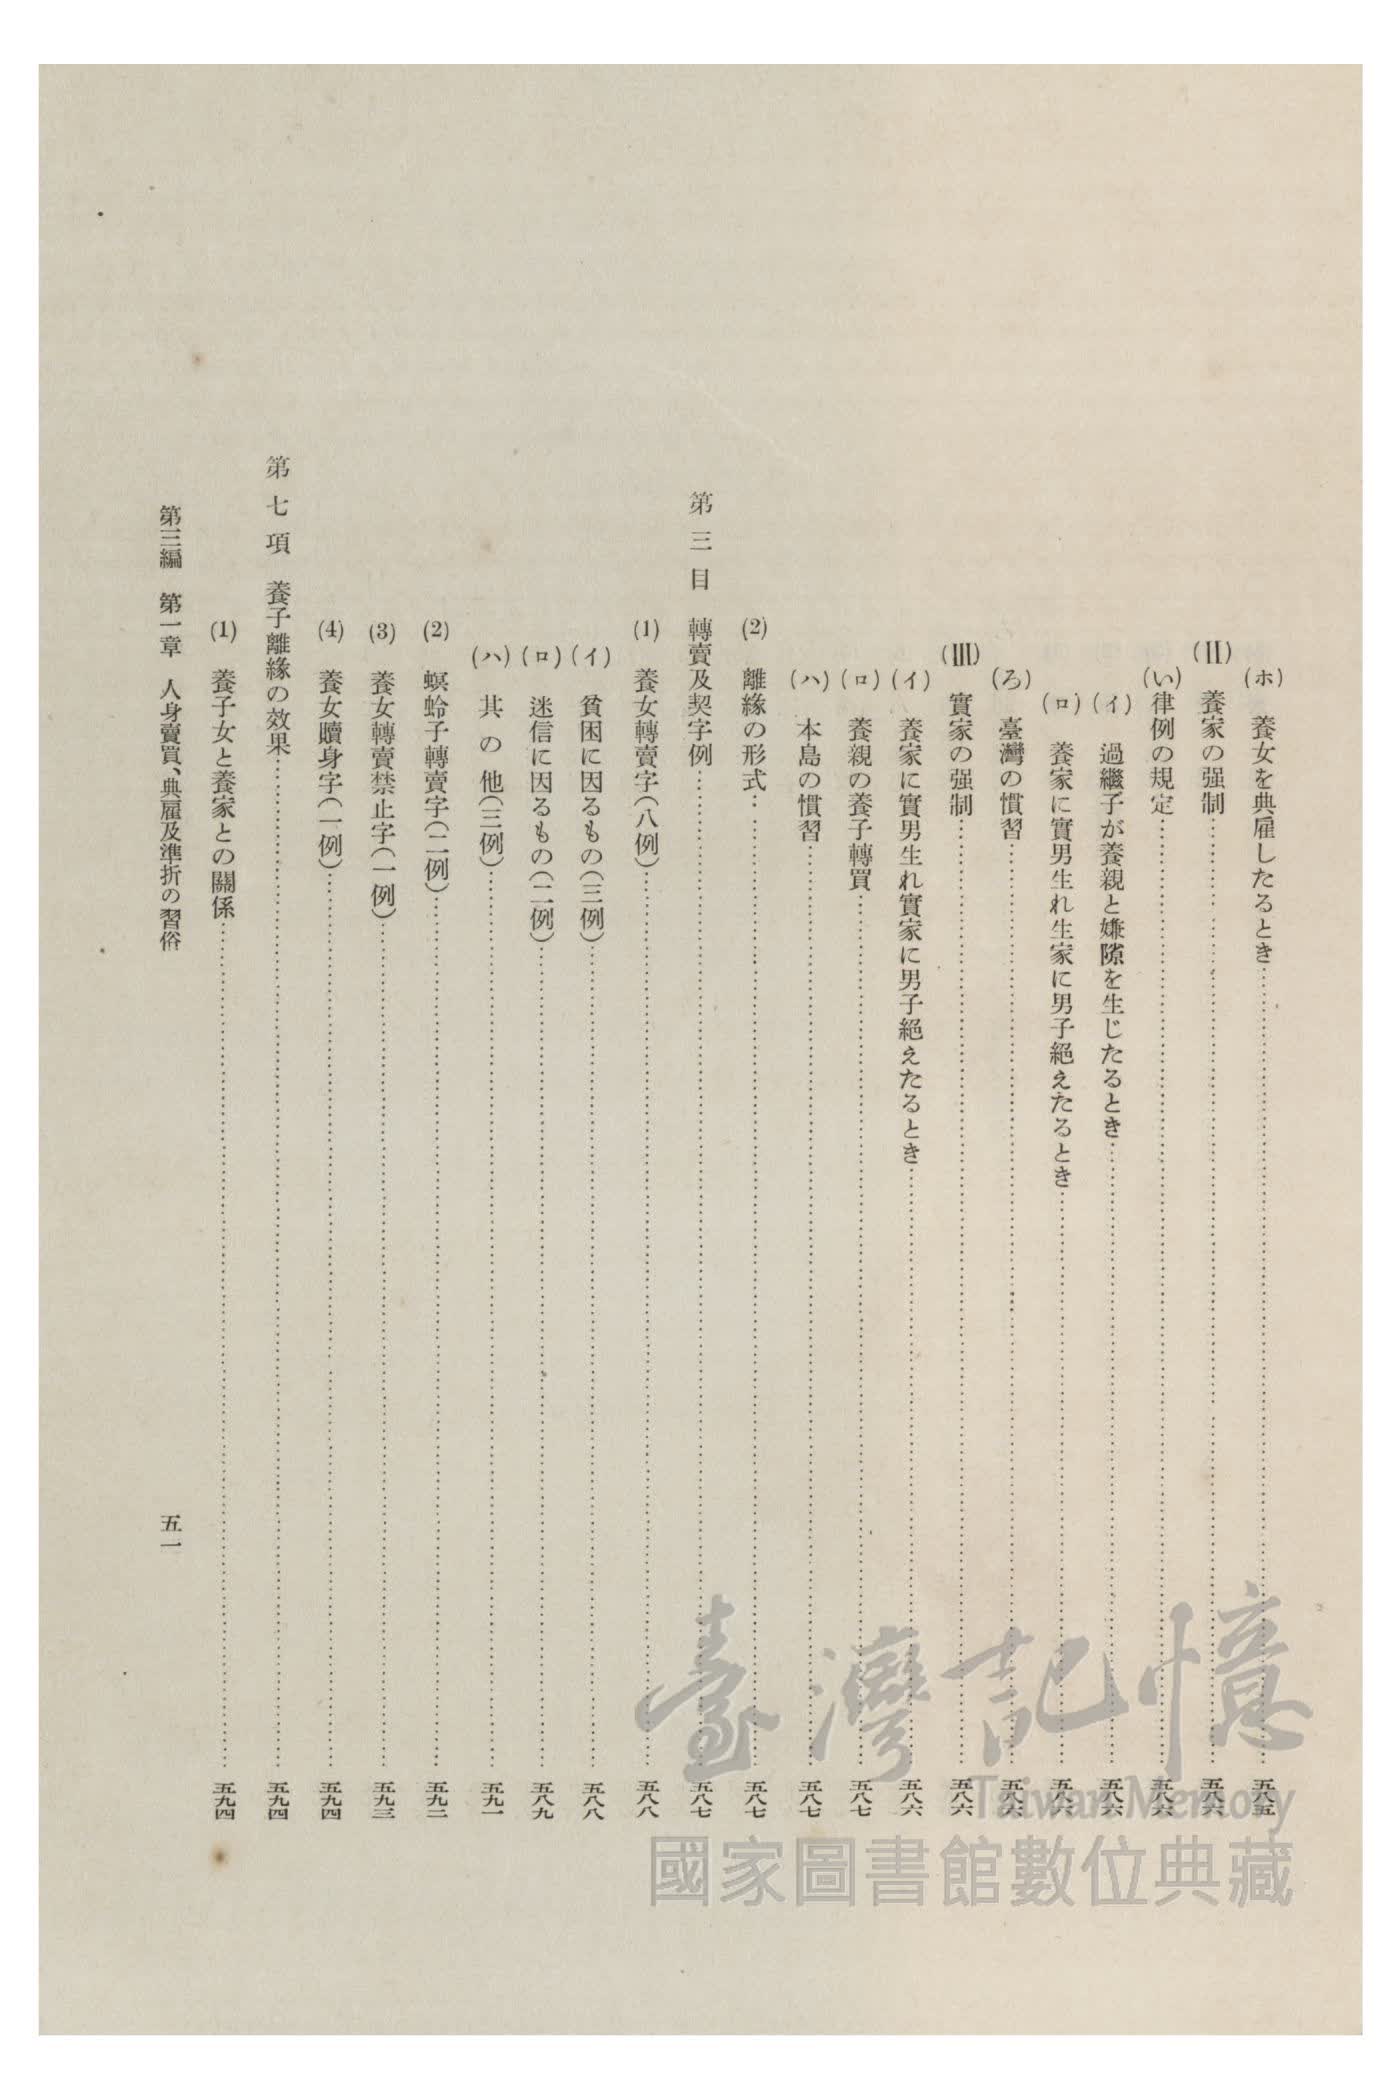 (ホ) 養女を典雇したるとき……五八五
(Ⅱ) 養家の强制……五八六
(い) 律例の規定……五八六
(イ) 過繼子が養親と嫌隙を生じたるとき……五八六
(ロ) 養家に實男生れ生家に男子絕えたるとき……五八六
(ろ) 臺灣の慣習……五八六
(Ⅲ) 實家の强制……五八六
(イ) 養家に實男生れ實家に男子絕えたるとき……五八六
(ロ) 養親の養子轉買……五八七
(ハ) 本島の慣習……五八七
(2) 離緣の形式……五八七
第三目 轉賣及契字例……五八七
(1) 養女轉賣字(八例)……五八八
(イ) 貧困に因るもの(三例)……五八八
(ロ) 迷信に因るもの(二例)……五八九
(ハ) 其の他(三例)……五九一
(2) 螟蛉子轉賣字(二例)……五九二
(3) 養女轉賣禁止字(一例)……五九三
(4) 養女贖身字(一例)……五九四
第七項 養子離緣の效果……五九四
(1) 養子女と養家との關係……五九四
第三編 第一章 人身賣買、典雇及準折の習俗 五一
臺灣記憶
Taiwan Memory
國家圖書館數位典藏